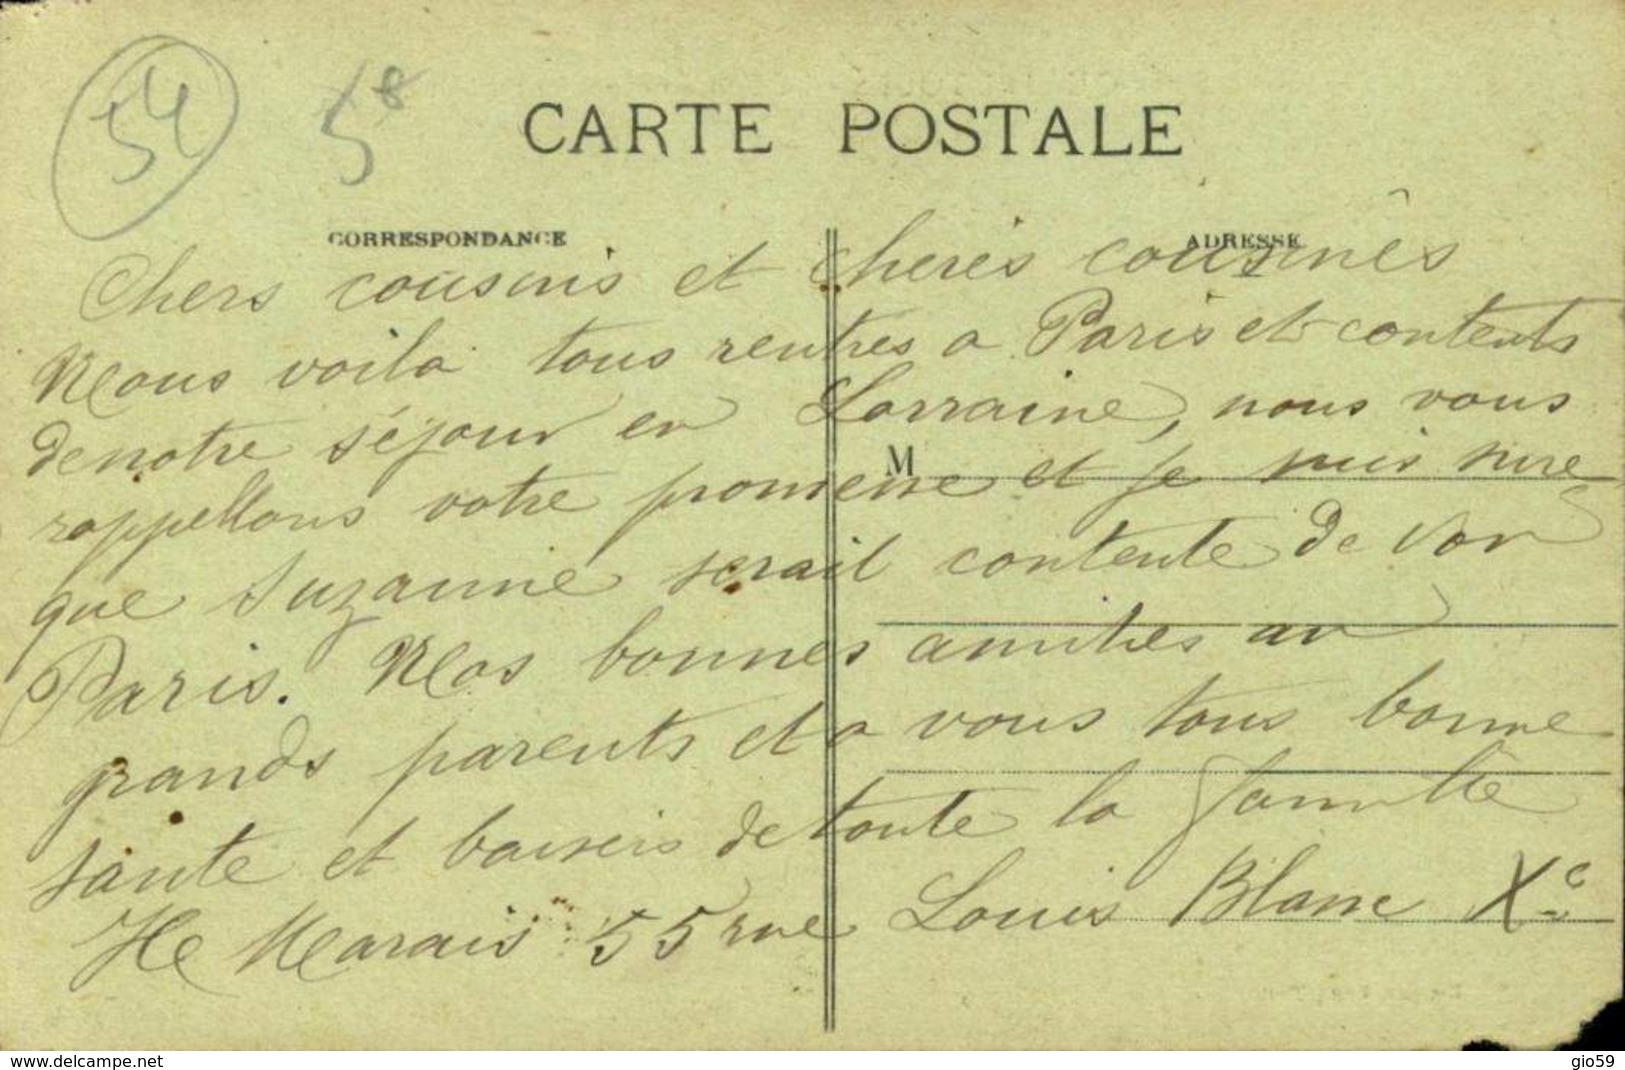 54
5 8
CARTE POSTALE
CORRESPONDANCE
ADRESSE
Chers cousins et cheres cousines
Nous voila tous rentres a Paris et contents
de notre séjour en Lorraine, nous vous
rappellons votre promesse et je suis sure
que Suzanne serait contente de voir
Paris. Nos bonnes amities au
grands parents et a vous tous bonne
sante et baisers de toute la famille
He Marais 55 rue Louis Blanc Xe
M
www.delcampe.net
gio59